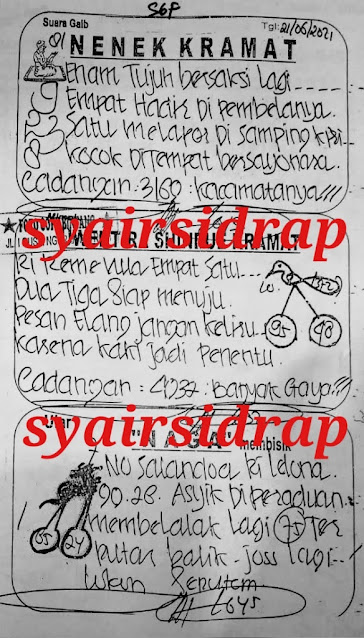 SGP
Suara Gaib
Tgl: 21/06/2021
NENEK KRAMAT
Enam Tujuh bersaksi lagi
Empat Hadir Di Pembelanya.
Satu melapor Di samping
kocok DiTempat
Cadangan : 3160 : kacamatanya!!!
syairsidrap
KRAMAT
Ki Reme Nua Empat Satu
Dua Tiga Siap menuju.
Pesan Elang jangan keliru
karena kaki jadi Penentu.
95 48
Cadangan : 4237 : Banyak Gaya!!!
syairsidrap
"NAGA" membisik
No Ki Lelona.
90.28. Asyik Di peraduan
membelalak lagi 75 Ter
putar balik - joss lagi
Seputam
05 24
2645